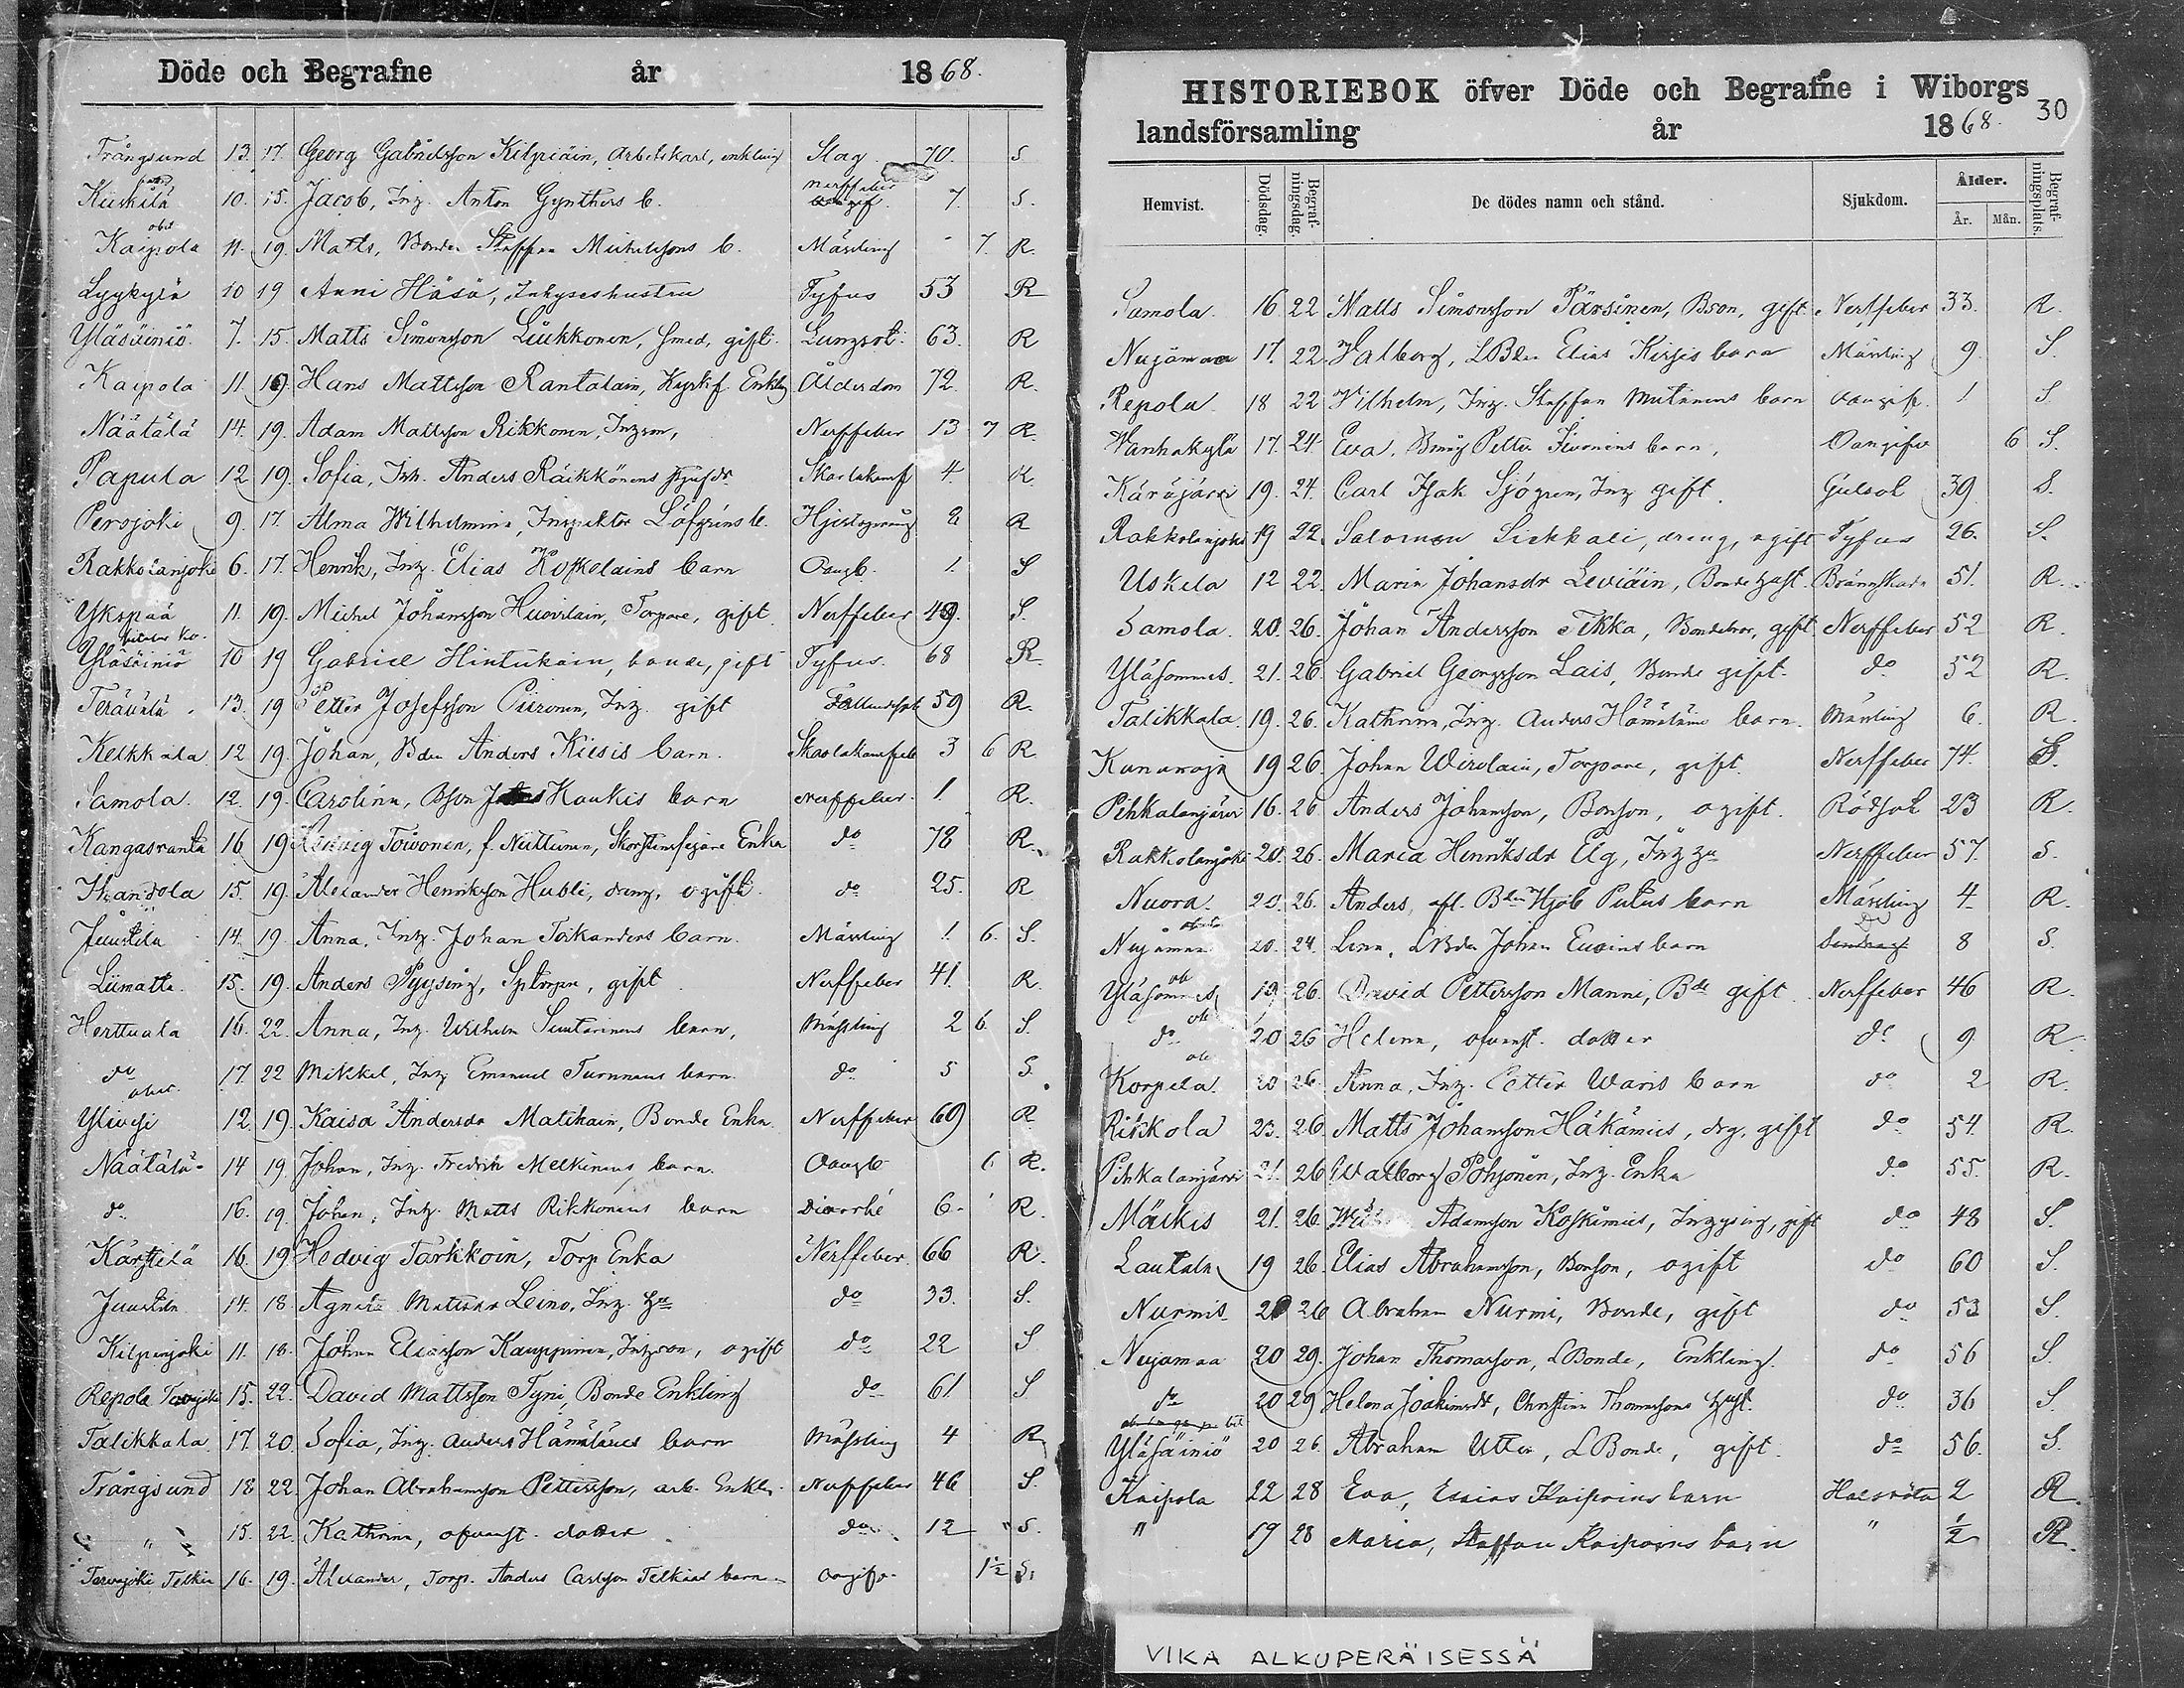 Döde och Begrafne år 1868.
Trångsund 13. 17. Georg Gabrielsson Kilpiäin, arbetskarl, enkling Slag 70. S.
Kiiskilä 10. 15. Jacob, Ing. Anton Gynthers b. Nerffeber 7. S.
obs
Kaipola 11. 19. Matts, Bonden Staffan Michelssons b. Mässling 7. R.
Lyykylä 10 19 Anni Häsä, Inhyseshustru Tyfus 53 R
Yläsäiniö 7. 15. Matts Simonsson Liukkonen, Smed, gift. Lungsot. 63. R
Kaipola 11. 19. Hans Mattsson Rantalain, Enkling Ålderdom 72. R.
Näätälä 14. 19. Adam Mattsson Rikkonen, Ingson, Nerffeber 13 7 R.
Papula 12 19. Sofia, Inh. Anders Räikkönens 4. R.
Perojoki 9. 17. Alma Wilhelmina, Inspektor Löfgrens b. 2 R
Rakkolanjoki 6. 17. Henrik, Ing. Elias barn Oangb. 1. S
Ykspää 11. 19. Michel Johansson Huovilain, Torpare, gift Nerffeber 49. S.
Yläsäiniö 10 19 Gabriel Hintukain, bonde, gift Tyfus. 68 R.
Terävälä 13. 19 Petter Josefsson Piironen, Ing. gift 59 R.
Kelkkala 12 19. Johan, Bden Anders Kiesis barn. 3 6 R.
Samola. 12. 19. Carolina, Bson Kaukis barn Nerffeber. 1. R.
Kangasranta 16 19 Hedvig Toivonen, f. Nuttunen, Skorstensfejare Enka do 78 R.
15. 19. Alexander Henriksson Hubli, dreng, ogift. do 25. R
Juustila 14. 19. Anna, Ing. Johan Toikanders barn. Mässling 1. 6. S.
Liimatta. 15. 19. Anders Pyysing, gift Nerffeber 41. R.
Herttuala 16. 22. Anna, Ing. Wilhelm Suutarinens barn, Mässling 2 6. S.
do 17. 22 Mikkel, Ing Emanuel Turunens barn. do 5 S.
12. 19. Kaisa Andersdr Matikain, Bonde Enka Nerffeber 69 R
Näätälä 14 19. Johan, Ing. Fredrik Melkinens barn. Oangb 6 R.
do 16. 19. Johan, Ing. Matts Rikkonens barn Diarrhé 6. R.
Kärstilä 16. 19 Hedvig Tarkkoin, Torp. Enka Nerffeber. 66 R.
Juustila 14. 18. Agneta Leino, Ing. do 33. S.
Kilpenjoki 11. 18. Johan Eliasson Kauppinen, Ingson, ogift do 22 S
Repola 15. 22. David Mattsson Tyni, Bonde Enkling do 61. S
Talikkala 17. 20. Sofia, Ing. Anders Hämäläines barn Mässling 4 R.
Trångsund 18 22. Johan Abrahamsson Pettersson, arb. Enkl. Nerffeber 46 S.
" 15. 22. Kathrina, ofvanst. dotter do 12 S.
Tervajoki Telkin 16. 19. Alexander, Torp. Anders Carlsson Telkins barn oangifv. 1½ S.
HISTORIEBOK öfver Döde och Begrafne i Wiborgs
landsförsamling år 1868. 30
Hemvist. Dödsdag. Begrafningsdag. De dödes namn och stånd. Sjukdom. Ålder. År. Mån. Begrafningsplats.
Samola. 16. 22 Matts Simonsson Pärsinen, Bson, gift Nerffeber 33. R.
Nujamaa 17. 22. Walborg, LBden Elias Kirsis barn Mässling 9. S.
Repola 18 22 Wilhelm, Ing. Staffan Mutanens barn oangifv. 1 S.
Wanhakylä 17. 24. Eva, Petter Iivonens barn, Oangifv 6 S.
Käräjärvi 19. 24. Carl Isak Sjögren, Ing gift. Gulsot 39 S.
Rakkolanjoki 19 22. Salomon Sickkali, dreng, ogift Tyfus 26. S.
Uskela 12 22. Maria Johansdr Leviäin, Bondehust. Brännskada 51. R.
Samola. 20. 26. Johan Andersson Tikka, Bondebror, gift Nerffeber 52 R.
Yläsommee. 21. 26. Gabriel Georgsson Lais, Bonde gift. do 52 R.
Talikkala. 19. 26. Kathrina, Ing. Anders Hämäläins barn. Mässling 6. R.
Kananoja 19 26. Johan Wirolain, Torpare, gift. Nerffeber 74. S.
Pihkalanjärvi 16. 26 Anders Johansson, Bonson, ogift. Rödsot 23 R.
Rakkolanjoki 20. 26. Maria Henriksdr Elg, Ing Nerffeber 57. S.
Nuora. 20. 26. Anders, afl. Bden Hjob Putus barn Mässling 4. R.
Nujamaa 20. 24. Lena, LBden Johan barn do 8 S.
Yläsommee 19 26. David Pettersson Manni, Bde gift. Nerffeber 46 R.
do 20 26 Helena, ofvanst. dotter do 9 R
Korpela. 20 26. Anna, Ing. Petter Waris barn do 2 R.
Rikkola 23. 26. Matts Johansson Häkämies, drg. gift do 54. R.
Pihkalanjärvi 21. 26 Walborg Pohjonen, Ing. Enka do 55. R.
Mäskis 21. 26. Adamsson Koskimies, Ingysing, gift do 48 S.
Lautala 19 26. Elias Abrahamsson, Bonson, ogift do 60 S.
Nurmis 26 Abraham Nurmi, Bonde, gift do 53 S.
Nujamaa 20 29. Johan Thomasson, LBonde, Enkling. do 56 S.
do 20 29 Helena Joakimsdr, Christian Thomassons hust. do 36 S.
Yläsäiniö 20 26. Abraham Utter, LBonde, gift. do 56. S.
Kaipola 22 28 Eva, Esaias Kaipoins barn Halsröta 2 R.
" 19 28 Maria, Staffan Kaipoins barn " ½ R.
VIKA ALKUPERÄISESSÄ